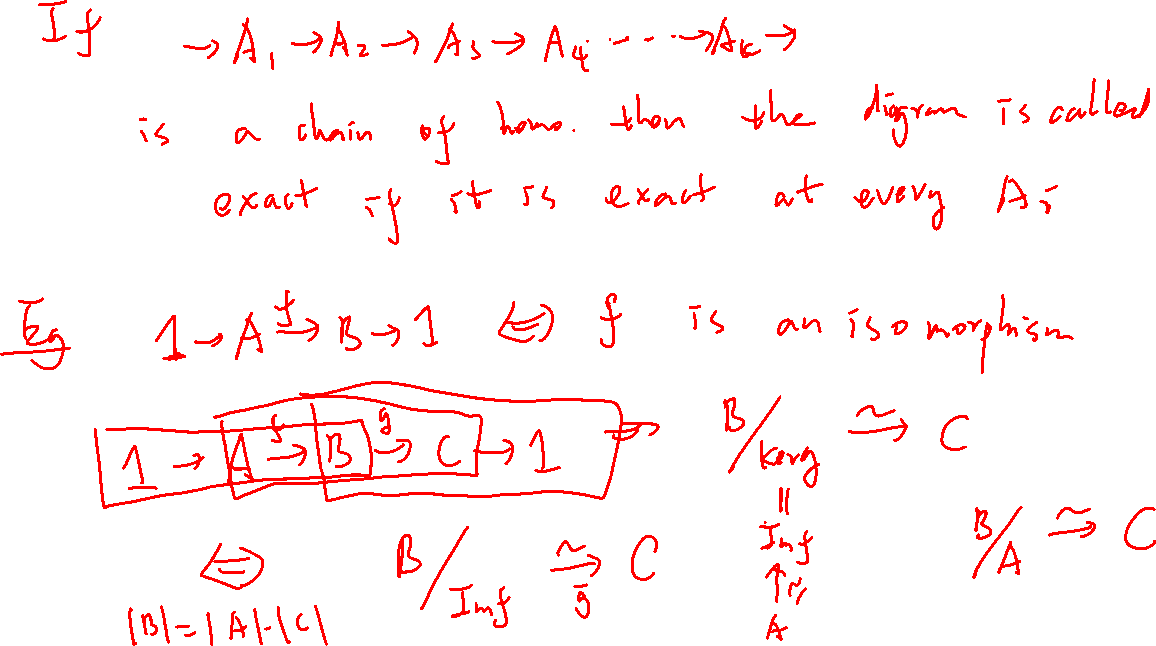 If → A₁ → A₂ → A₃ → A₄ ····→ Aₖ →
is a chain of homo. then the digram is called
exact if it is exact at every Aᵢ
Eg 1 → A →f B → 1 ⇔ f is an isomorphism
1 → A →f B →g C → 1 ⇒ B/Ker g ≃→ C
॥
Im f
↑ ~
A
B/A ≃→ C
⇔ B/Im f ≃→ C
ḡ
|B| = |A|·|C|